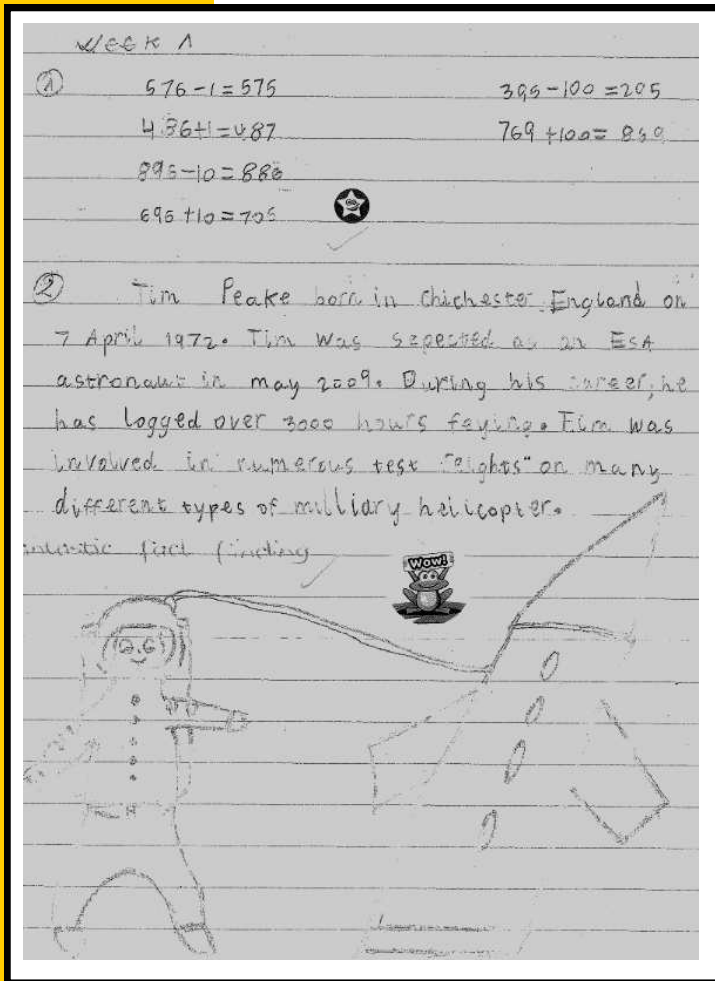 WEEK 1
① 576-1=575 395-100=295
486+1=487 769+100= 869
896-10=886
695+10=705
② Tim Peake born in chichester England on
7 April 1972. Tim was sepected as an ESA
astronaut in may 2009. During his career, he
has logged over 3000 hours feying. Tim was
involved in numerous test "feights" on many
different types of milliary helicopter.
fact finding
Wow!